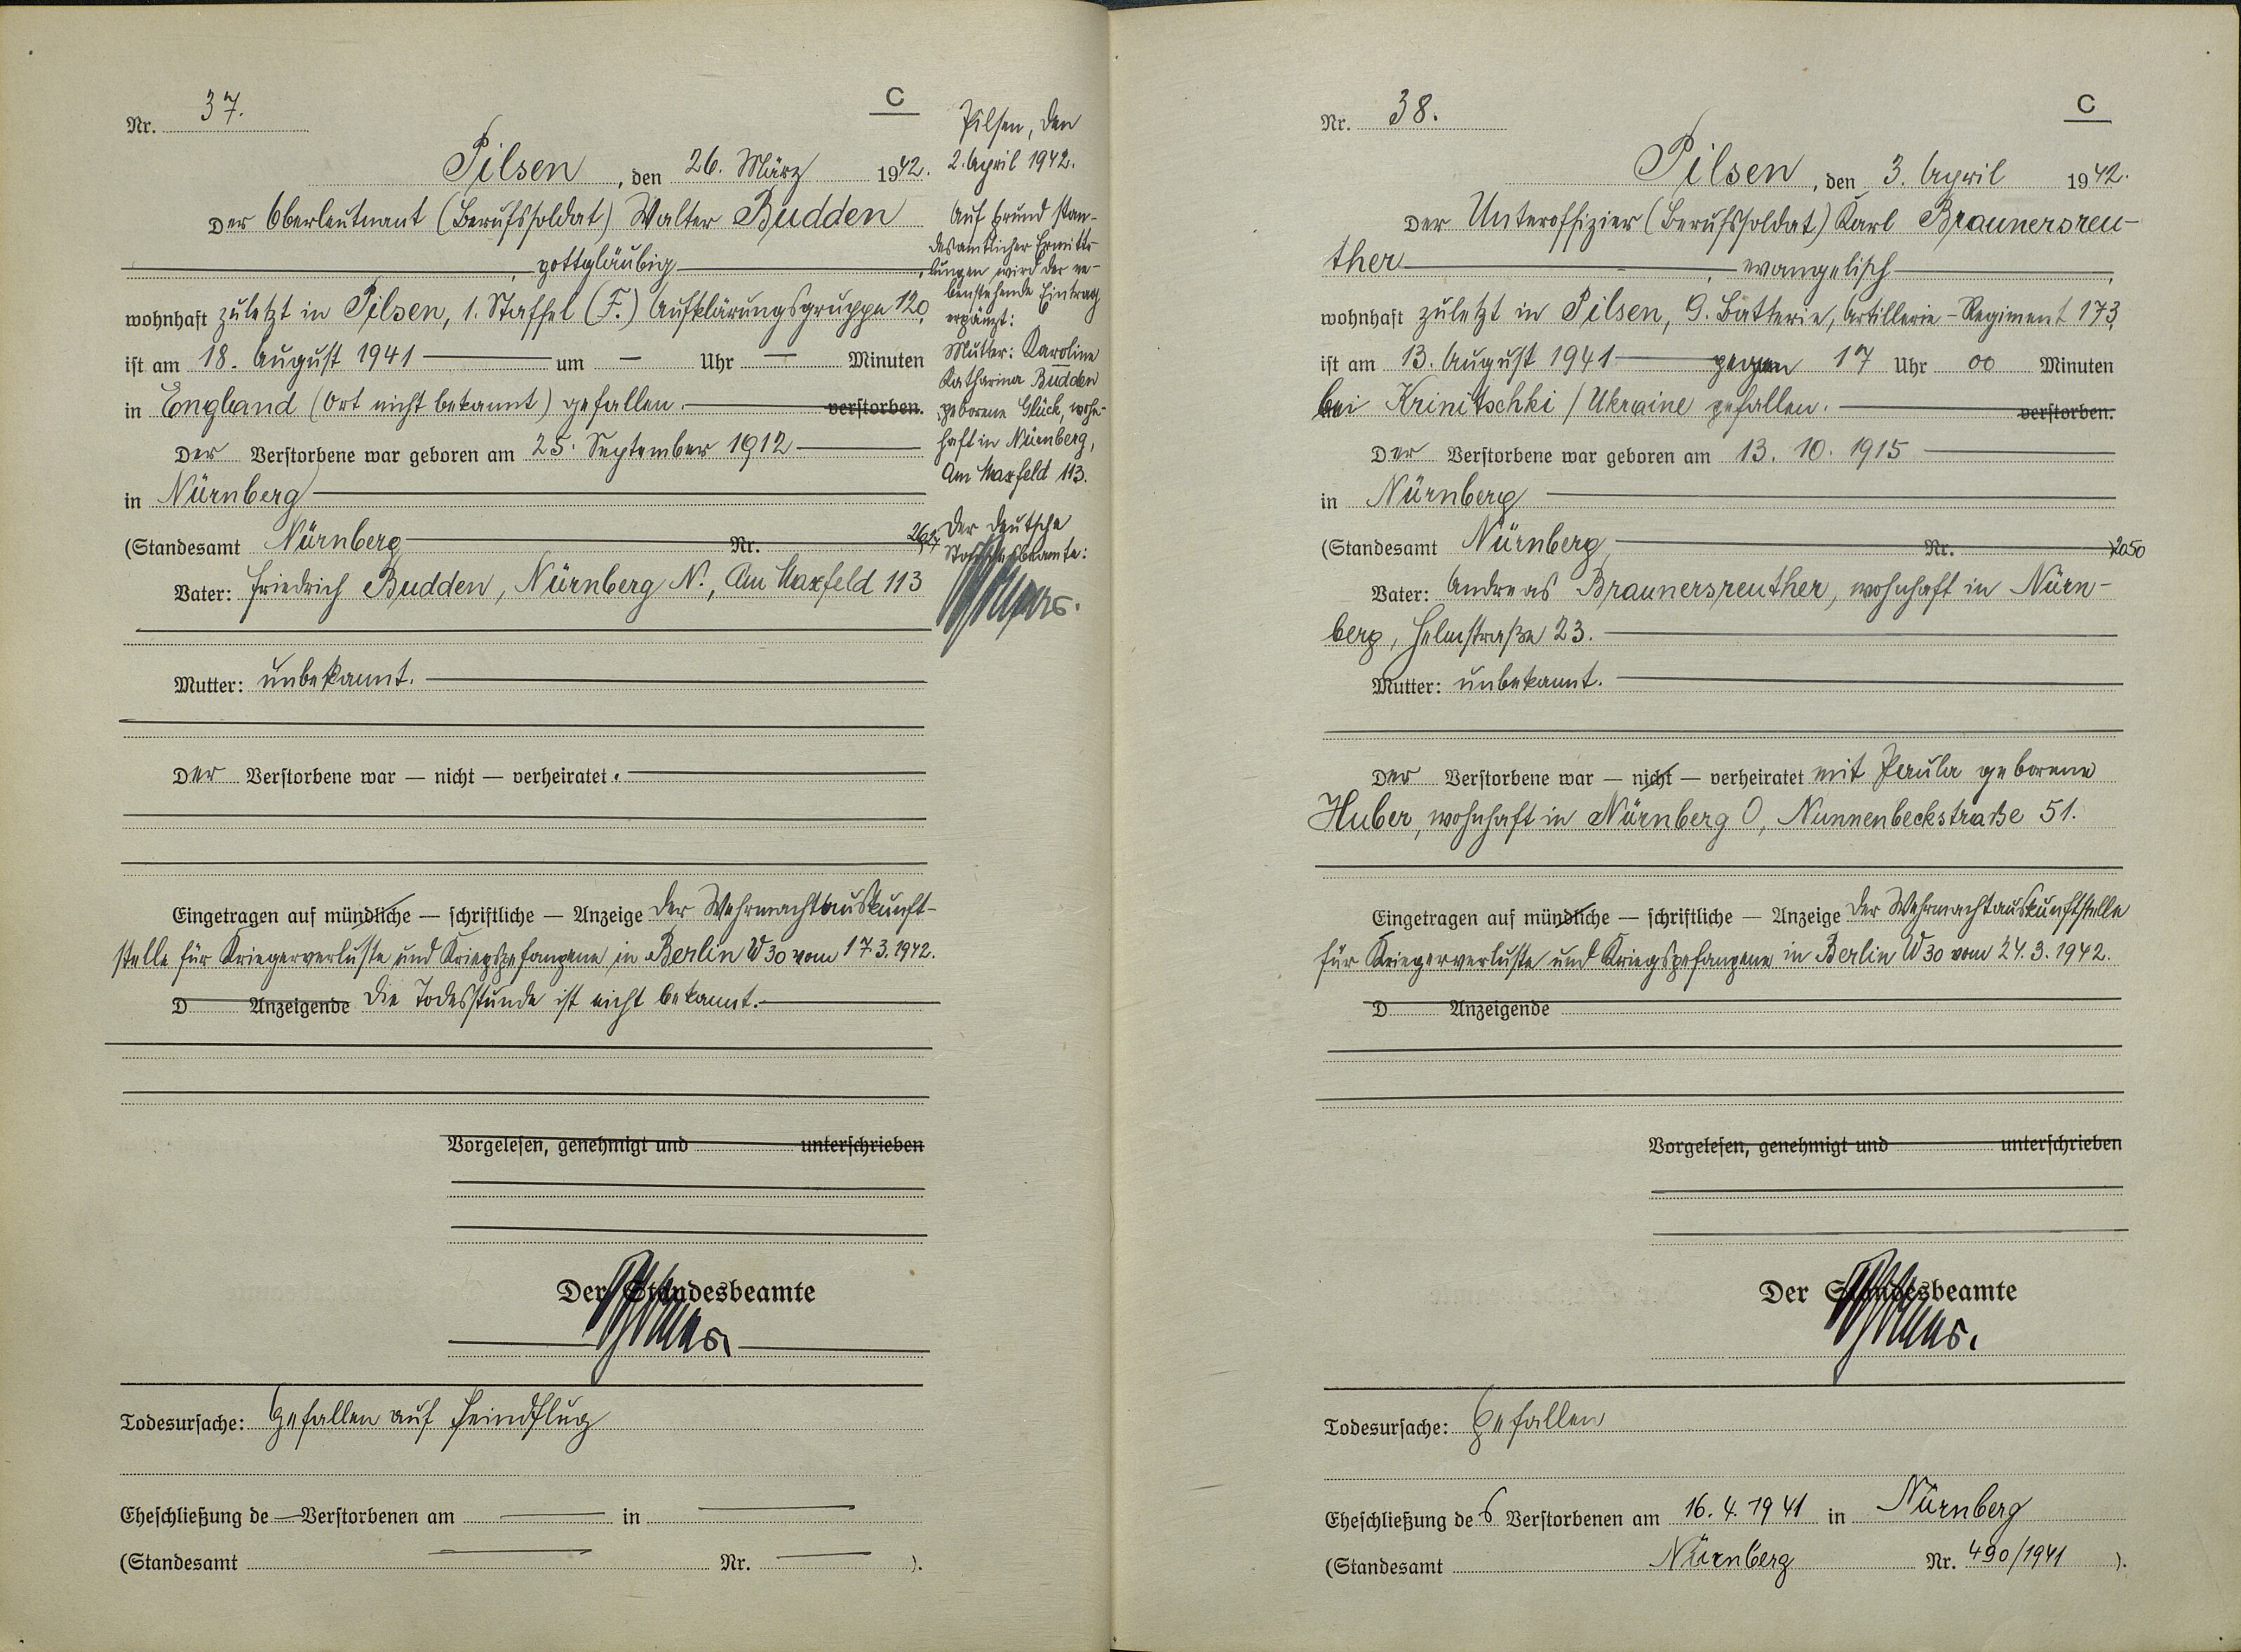 Nr. 37.
C
Pilsen, den 26. März 1942.
Der Oberleutnant (Berufssoldat) Walter Budden
, gottgläubig,
wohnhaft zuletzt in Pilsen, 1. Staffel (F.) Aufklärungsgruppe 120,
ist am 18. August 1941 um — Uhr — Minuten
in England (Ort nicht bekannt) gefallen. verstorben.
Der Verstorbene war geboren am 25. September 1912
in Nürnberg
(Standesamt Nürnberg Nr.
Vater: Friedrich Budden, Nürnberg N., Am Maxfeld 113
Mutter: unbekannt.
Der Verstorbene war — nicht — verheiratet.
Eingetragen auf mündliche — schriftliche — Anzeige der Wehrmachtauskunft-
stelle für Kriegerverluste und Kriegsgefangene in Berlin W 30 vom 17.3.1942.
D Anzeigende Die Todesstunde ist nicht bekannt.
Vorgelesen, genehmigt und unterschrieben
Der Standesbeamte
Todesursache: Gefallen auf Feindflug
Eheschließung de — Verstorbenen am — in —
(Standesamt — Nr. — ).
Pilsen, den
2. April 1942.
Auf Grund stan-
desamtlicher Ermitt-
lungen wird der ne-
benstehende Eintrag
ergänzt:
Mutter: Karoline
Katharina Budden
geborene Glück, wohn-
haft in Nürnberg,
Am Maxfeld 113.
Der Deutsche
Standesbeamte:
Nr. 38.
C
Pilsen, den 3. April 1942.
Der Unteroffizier (Berufssoldat) Karl Braunersreu-
ther, evangelisch,
wohnhaft zuletzt in Pilsen, 9. Batterie, Artillerie-Regiment 173,
ist am 13. August 1941 gegen 17 Uhr 00 Minuten
bei Krinitschki / Ukraine gefallen. verstorben.
Der Verstorbene war geboren am 13. 10. 1915
in Nürnberg
(Standesamt Nürnberg Nr. 2050
Vater: Andreas Braunersreuther, wohnhaft in Nürn-
berg, Helmstraße 23.
Mutter: unbekannt.
Der Verstorbene war — nicht — verheiratet mit Paula geborene
Huber, wohnhaft in Nürnberg O, Nunnenbeckstraße 51.
Eingetragen auf mündliche — schriftliche — Anzeige der Wehrmachtauskunftstelle
für Kriegerverluste und Kriegsgefangene in Berlin W 30 vom 24. 3. 1942.
D Anzeigende
Vorgelesen, genehmigt und unterschrieben
Der Standesbeamte
Todesursache: Gefallen
Eheschließung des Verstorbenen am 16. 4. 1941 in Nürnberg
(Standesamt Nürnberg Nr. 490/1941 ).